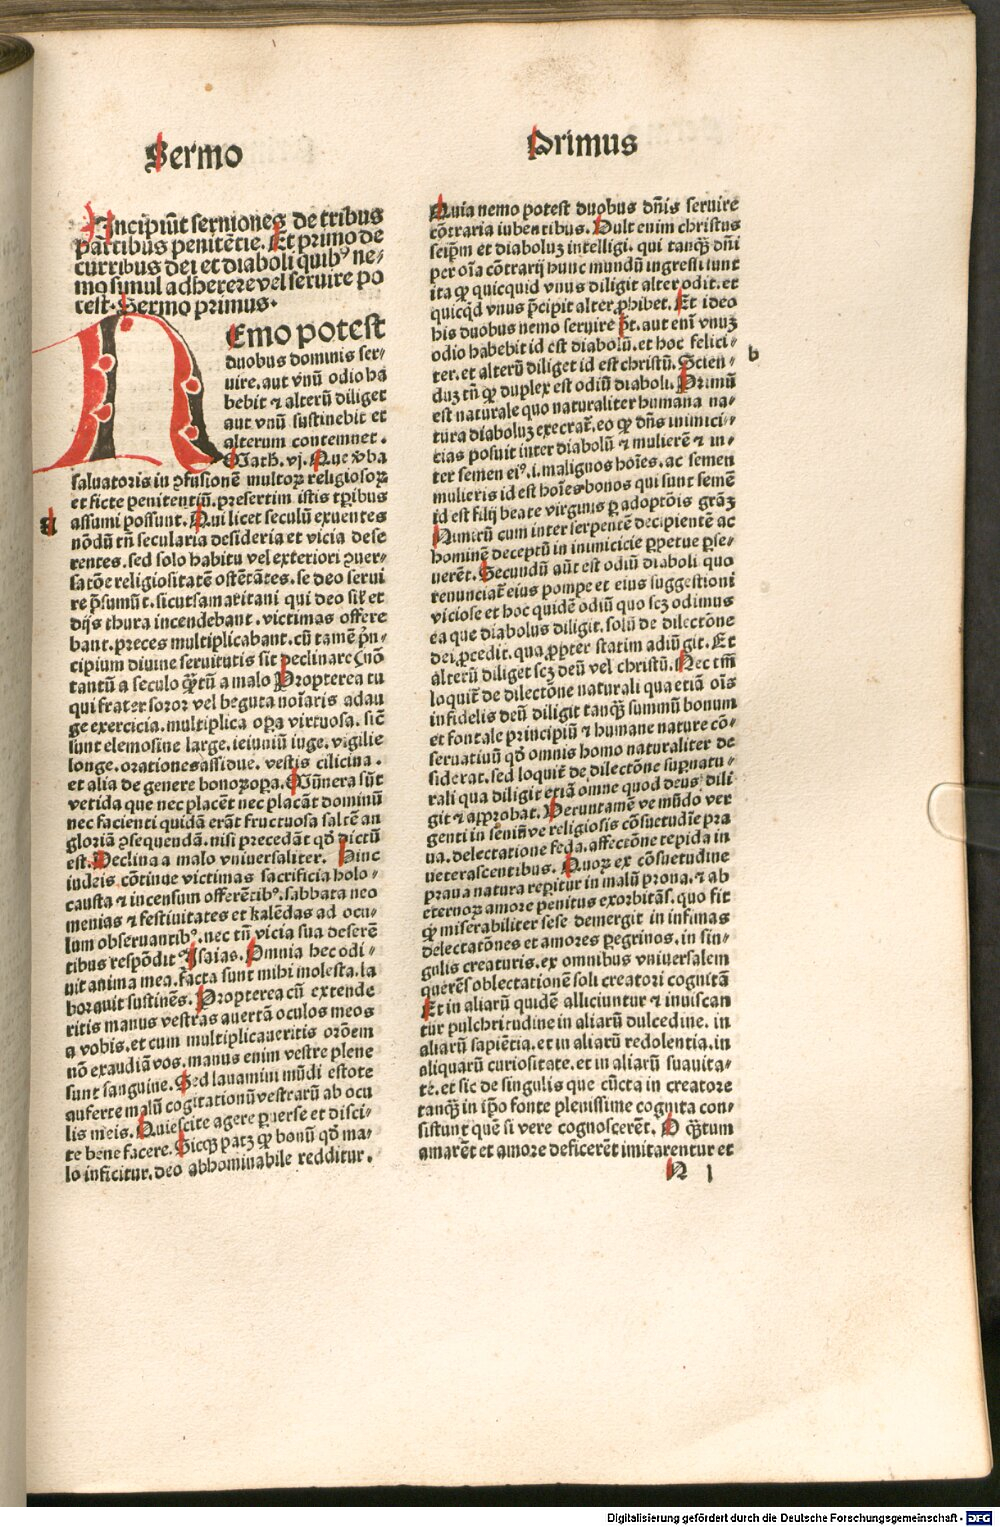 Sermo
Primus
Incipiūt sermones de tribus
partibus penitētie. Et primo de
curribus dei et diaboli quibꝰ ne⸗
mo simul adherere vel seruire po
test. Sermo primus.
NEmo potest
duobus dominis ser⸗
uire. aut vnū odio ha
bebit ⁊ alterū diliget
aut vnū sustinebit et
alterum contemnet.
Math. vj. Que v̄ba
saluatoris in ꝯfusionē multoꝝ religiosoꝝ
et ficte penitentiū. presertim istis tꝑibus
a
assumi possunt. Qui licet seculū exuentes
nōdū tn̄ secularia desideria et vicia dese
rentes. sed solo habitu vel exteriori ꝯuer⸗
satōe religiositatē ostētātes. se deo serui
re p̄sumūt. sicut samaritani qui deo sil̄r et
dijs thura incendebant. victimas offere
bant. preces multiplicabant. cū tamē p̄n⸗
cipium diuine seruitutis sit declinare (nō
tantū a seculo q̄ꝫtū a malo Propterea tu
qui frater soror vel beguta noīaris adau
ge exercicia. multiplica oꝑa virtuosa. sic̄
sunt elemosine large. ieiuniū iuge. vigilie
longe. orationes assidue. vestis cilicina.
et alia de genere bonoꝝ oꝑa. Mūnera sūt
vetida que nec placēt nec placāt dominū
nec facienti quidā erāt fructuosa saltē an
gloriā ꝯsequendā. nisi precedāt qd̄ dictū
est. Declina a malo vniuersaliter. Hinc
iudeis cōtinue victimas sacrificia holo⸗
causta ⁊ incensum offerētibꝰ. sabbata neo
menias ⁊ festiuitates et kalēdas ad ocu⸗
lum obseruantibꝰ. nec tn̄ vicia sua deserē
tibus respōdit Isaias. Omnia hec odi⸗
uit anima mea. facta sunt mihi molesta. la
boraui sustinēs. Propterea cū extende
ritis manus vestras auertā oculos meos
a vobis. et cum multiplicaueritis orōem
nō exaudiā vos. manus enim vestre plene
sunt sanguine. Sed lauamini mūdi estote
auferte malū cogitationū vestrarū ab ocu
lis meis. Quiescite agere ꝑuerse et disci⸗
te bene facere. Sicqꝫ patꝫ ꝙ bonū qd̄ ma⸗
lo inficitur. deo abhominabile redditur.
Quia nemo potest duobus dn̄is seruire
cōtraria iubentibus. Vult enim christus
seip̄m et diaboluꝫ intelligi. qui tanqꝫ dn̄i
per oīa cōtrarij hunc mundū ingressi sunt
ita ꝙ quicquid vnus diligit alter odit. et
quicqd vnus p̄cipit alter ꝓhibet. Et ideo
his duobus nemo seruire p̄t. aut enī vnuꝫ
odio habebit id est diabolū. et hoc felici⸗
b
ter. et alterū diliget id est christū. Scien⸗
duꝫ tn̄ ꝙ duplex est odiū diaboli. Primū
est naturale quo naturaliter humana na⸗
tura diaboluꝫ execrat᷑. eo ꝙ dn̄s inimici⸗
cias posuit inter diabolū ⁊ mulierē ⁊ in⸗
ter semen eiꝰ. i. malignos hoīes. ac semen
mulieris id est hoīes bonos qui sunt semē
id est filij beate virginis ꝑ adoptōis graꝫ
Numirū cum inter serpentē decipientē ac
hominē deceptū in inimicicie ꝑpetue ꝑse⸗
uerēt. Secundū aūt est odiū diaboli quo
renunciat᷑ eius pompe et eius suggestioni
viciose et hoc quidē odiū quo scꝫ odimus
ea que diabolus diligit. solū de dilectōne
dei ꝓcedit. qua ꝓpter statim adiūgit. Et
alterū diliget scꝫ deū vel christū. Nec tm̄
loquit᷑ de dilectōne naturali qua etiā oīs
infidelis deū diligit tanqꝫ summū bonum
et fontale principiū ⁊ humane nature cō⸗
seruatiuū qd̄ omnis homo naturaliter de
siderat. sed loquit᷑ de dilectōne suꝑnatu⸗
rali qua diligit etiā omne quod deus dili
git ⁊ approbat. Veruntamē ve mūdo ver
genti in seniū ve religiosis cōsuetudīe pra
ua. delectatione feda. affectōne tepida in
ueterascentibus. Quoꝝ ex cōsuetudine
praua natura reꝑitur in malū prona. ⁊ ab
eternoꝝ amore penitus exorbitās. quo fit
ꝙ miserabiliter sese demergit in infimas
delectatōnes et amores peregrinos. in sin⸗
gulis creaturis. ex omnibus vniuersalem
querēs oblectationē soli creatori cognitā
Et in aliarū quidē alliciuntur ⁊ inuiscan
tur pulchritudine in aliarū dulcedine. in
aliarū sapiētia. et in aliarū redolentia. in
aliquarū curiositate. et in aliarū suauita⸗
te. et sic de singulis que cūcta in creatore
tanqꝫ in ip̄o fonte plenissime cognita con⸗
sistunt quē si vere cognoscerēt. O q̄ꝫtum
amarēt et amore deficerēt imitarentur et
N 1
Digitalisierung gefördert durch die Deutsche Forschungsgemeinschaft - DFG